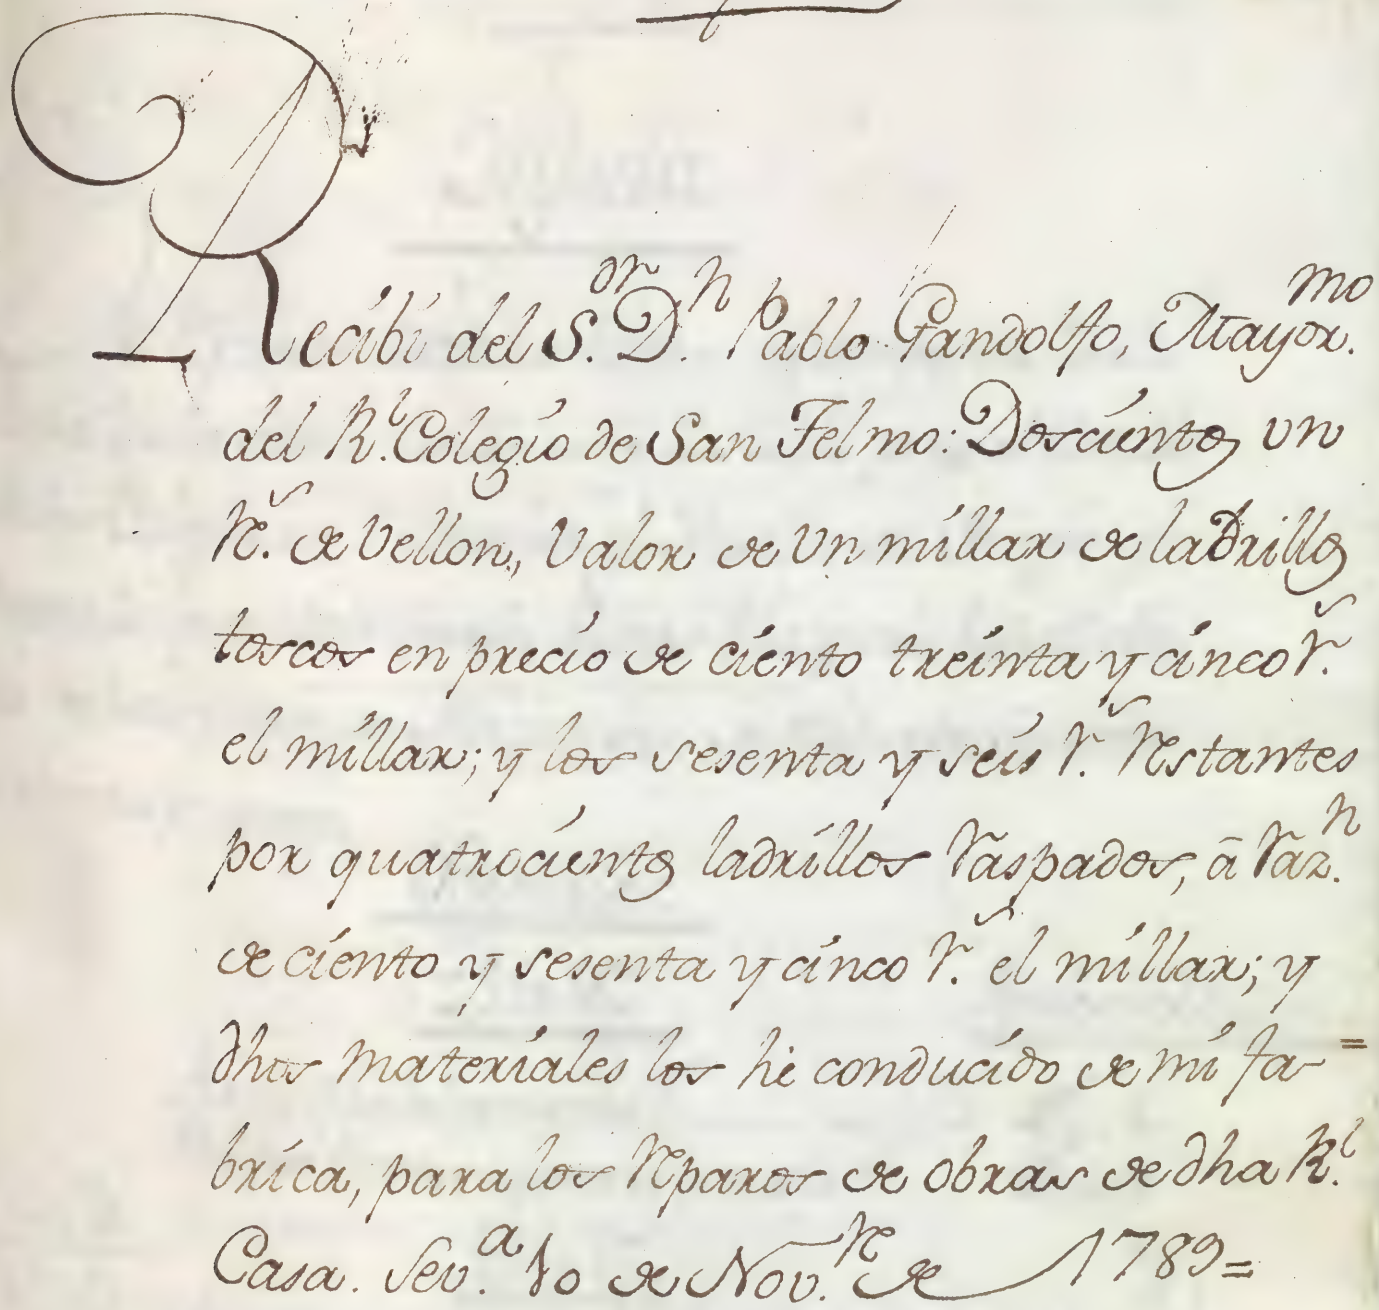 Recibí del S.or D.n Pablo Gandolfo, Mayor.mo
del R.l Colegio de San Telmo: Doscientos un
rs. de Vellon, Valor de Un millar de ladrillos
toscos en precio de ciento treinta y cinco rs.
el millar; y los sesenta y seis rs. restantes
por quatrocientos ladrillos raspados, â raz.n
de ciento y sesenta y cinco rs. el millar; y
dhos materiales los he conducido de mi fa=
brica, para los reparos de obras de dha R.l
Casa. Sev.a 10 de Nov.re de 1789=